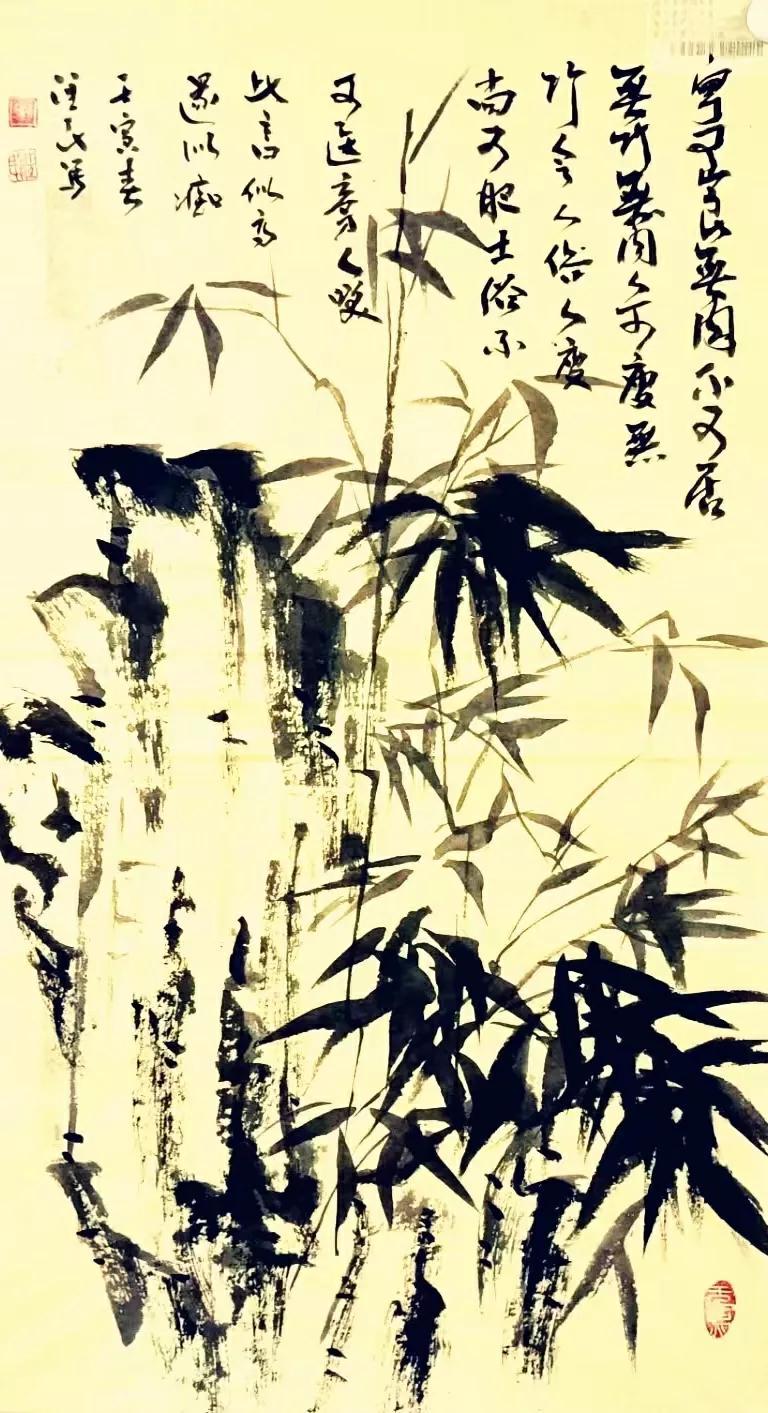 寧可食無肉不可居
無竹無肉令人瘦無
竹令人俗人瘦
尚可肥士俗不
可医旁人笑
此言似高
還似痴
壬寅春